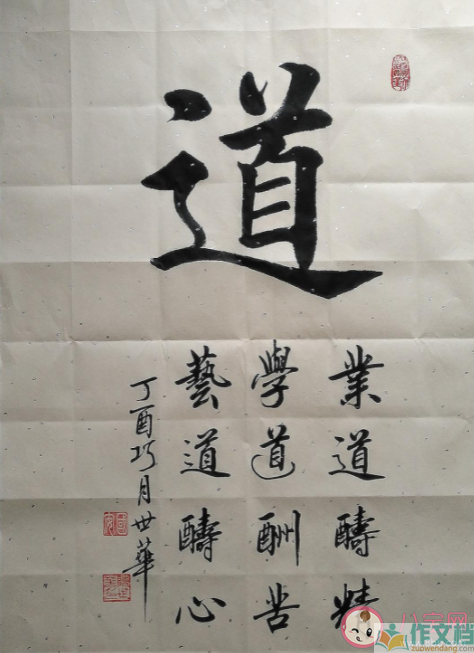 道
業道醻精
學道酬苦
藝道醻心
丁酉巧月世華
作文档
zuowendang.com